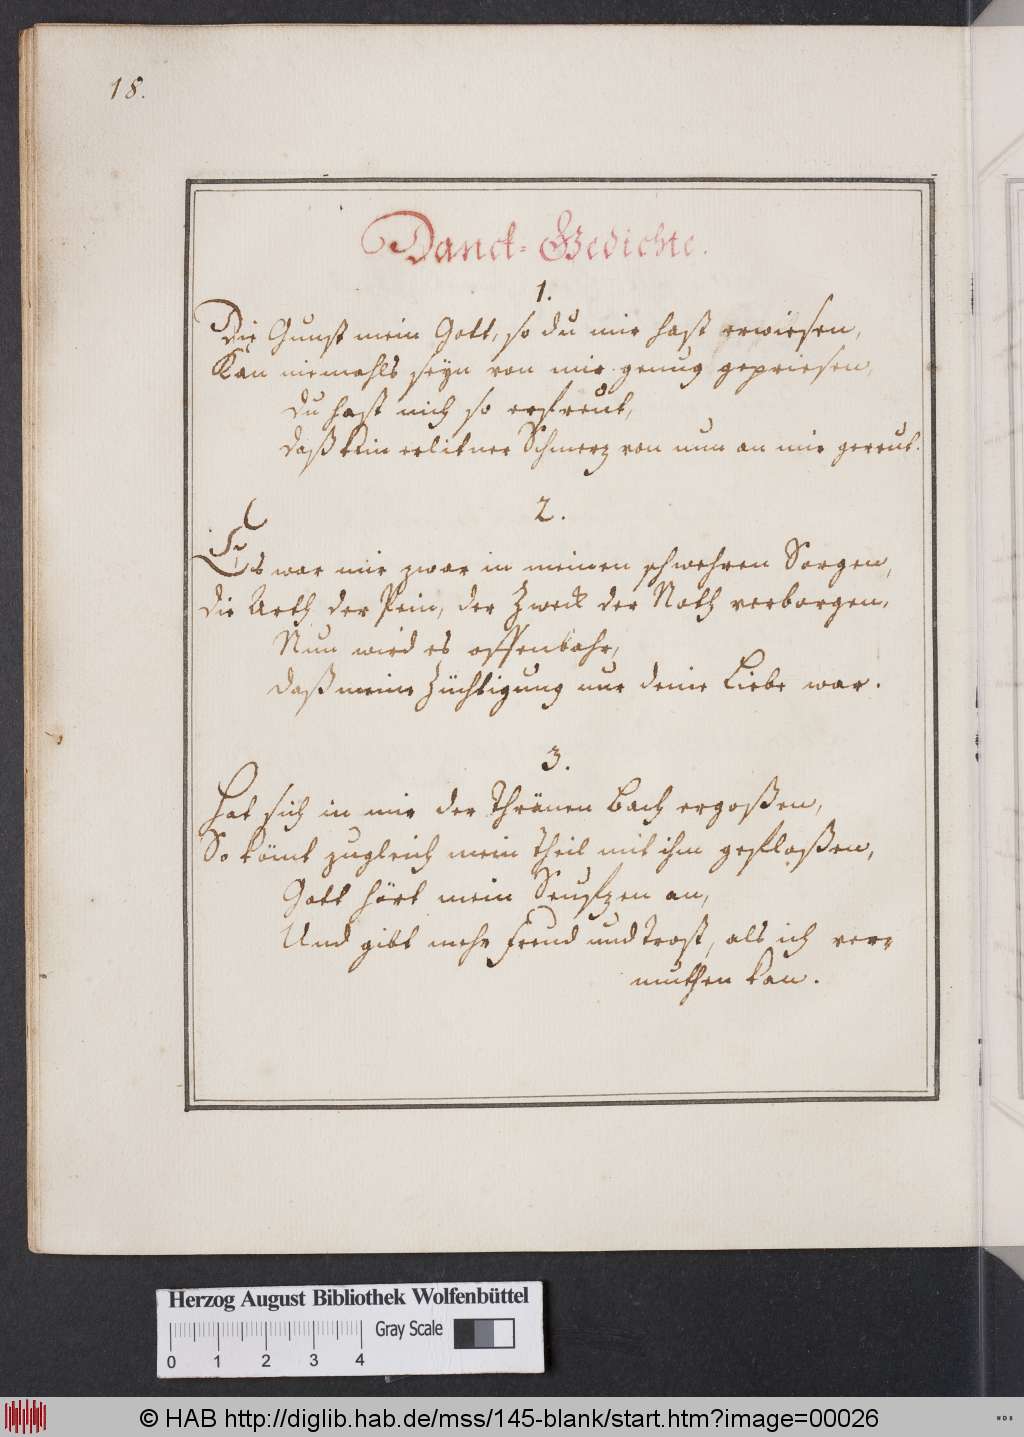 18.
Danck-Gedichte.
1.
Die Gunst mein Gott, so du mir hast erwiesen,
Kan niemahls seyn von mir genug gepriesen,
Du hast mich so erfreut,
Daß kein erlitner Schmerz von nun an mir gereut.
2.
Es war mir zwar in meinen schwehren Sorgen,
Die Arth der Pein, der Zweck der Noth verborgen,
Nun wird es offenbahr,
Daß meine Züchtigung nur deine Liebe war.
3.
Hat sich in mir der Thränen Bach ergoßen,
So kömt zugleich mein Theil mit ihm gefloßen,
Gott hört mein Seufzen an,
Und gibt mehr Freud und Trost, als ich ver-
muthen kan.
Herzog August Bibliothek Wolfenbüttel
Gray Scale
0 1 2 3 4
© HAB http://diglib.hab.de/mss/145-blank/start.htm?image=00026